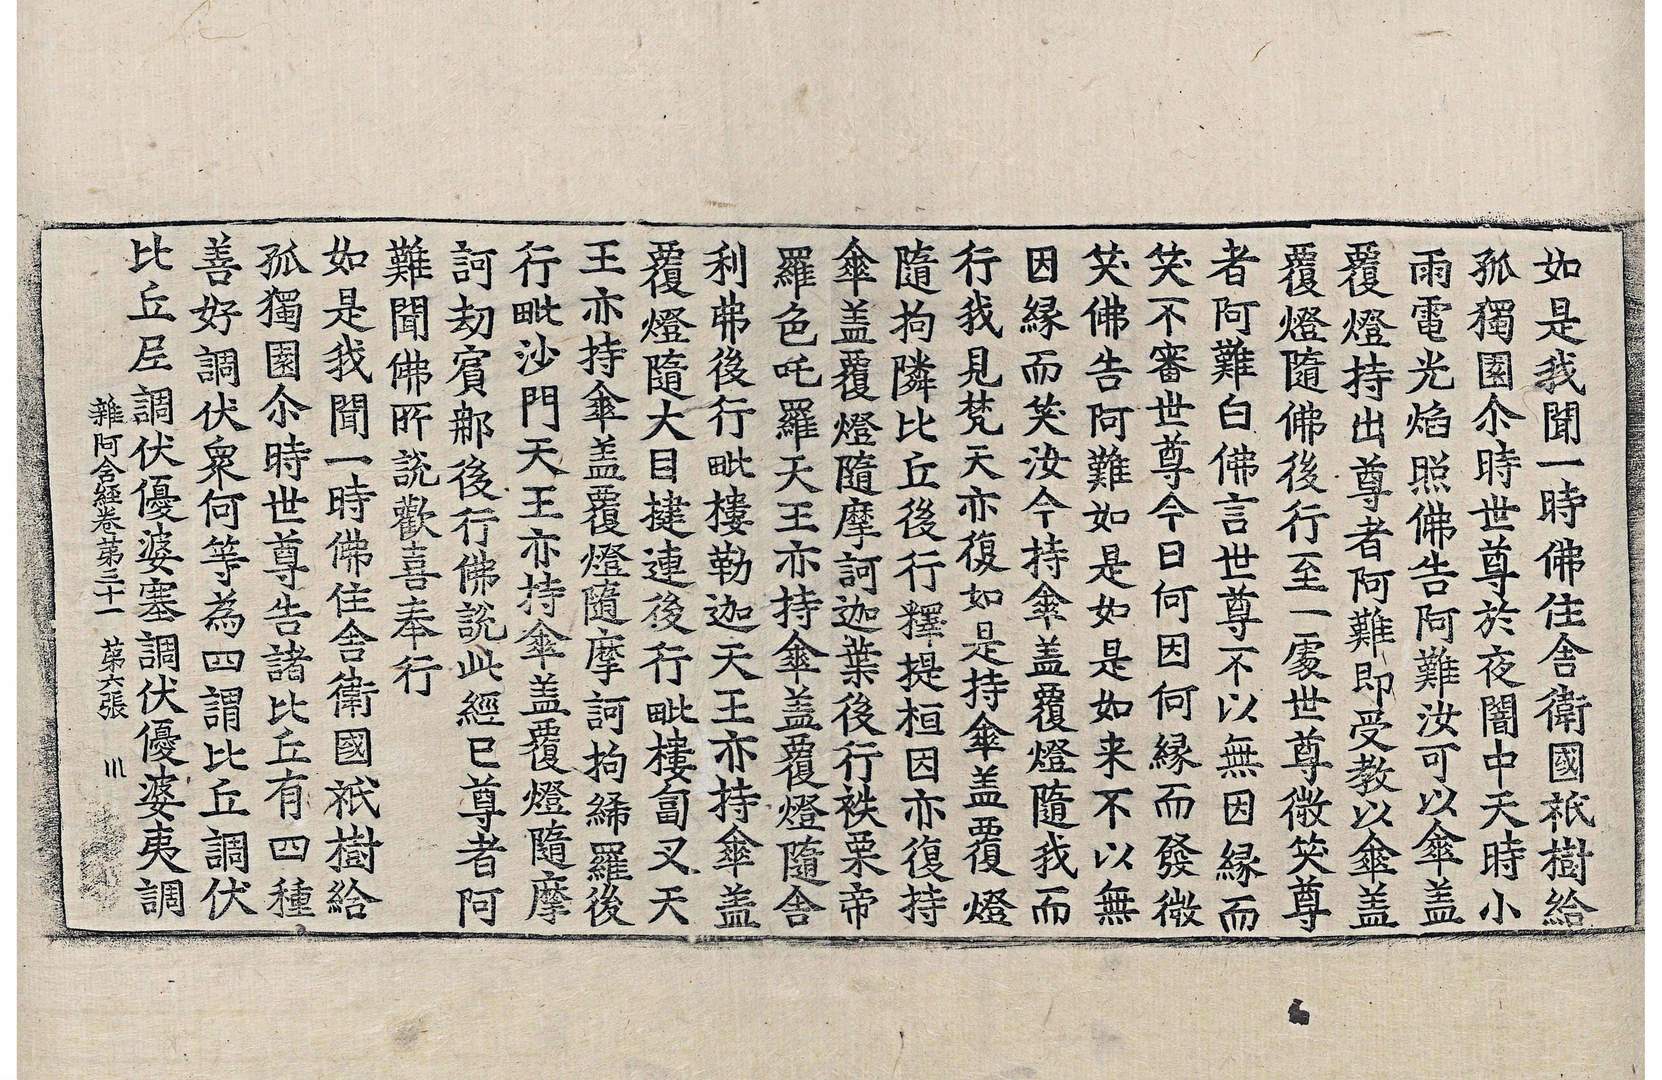 如是我聞一時佛住舍衛國祇樹給
孤獨園尒時世尊於夜闇中天時小
雨電光焰照佛告阿難汝可以傘盖
覆燈持出尊者阿難即受教以傘盖
覆燈隨佛後行至一處世尊微笑尊
者阿難白佛言世尊不以無因緣而
笑不審世尊今日何因何緣而發微
笑佛告阿難如是如是如来不以無
因緣而笑汝今持傘盖覆燈隨我而
行我見梵天亦復如是持傘盖覆燈
隨拘隣比丘後行釋提桓因亦復持
傘盖覆燈隨摩訶迦葉後行袟栗帝
羅色吒羅天王亦持傘盖覆燈隨舍
利弗後行毗樓勒迦天王亦持傘盖
覆燈隨大目揵連後行毗樓匐叉天
王亦持傘盖覆燈隨摩訶拘絺羅後
行毗沙門天王亦持傘盖覆燈隨摩
訶劫賓那後行佛說此經已尊者阿
難聞佛所說歡喜奉行
如是我聞一時佛住舍衛國祇樹給
孤獨園尒時世尊告諸比丘有四種
善好調伏衆何等為四謂比丘調伏
比丘尼調伏優婆塞調伏優婆夷調
雜阿含經卷苐三十一 苐六張 川